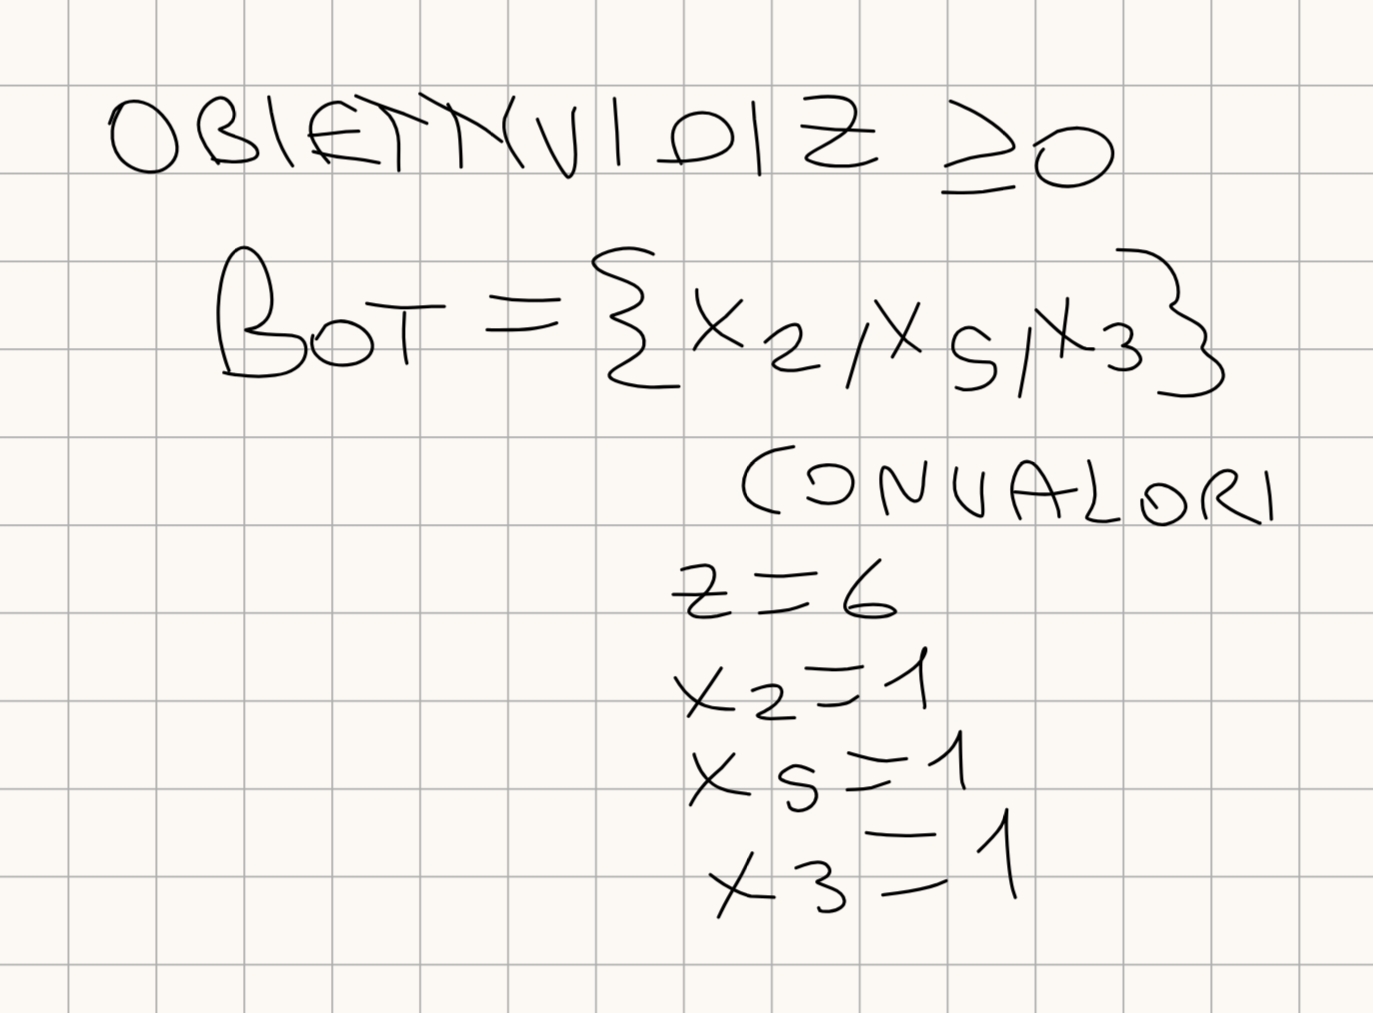 OBIETTIVI DI Z ≥ 0
BOT = {X2, X5, X3}
CON VALORI
Z = 6
X2 = 1
X5 = 1
X3 = 1